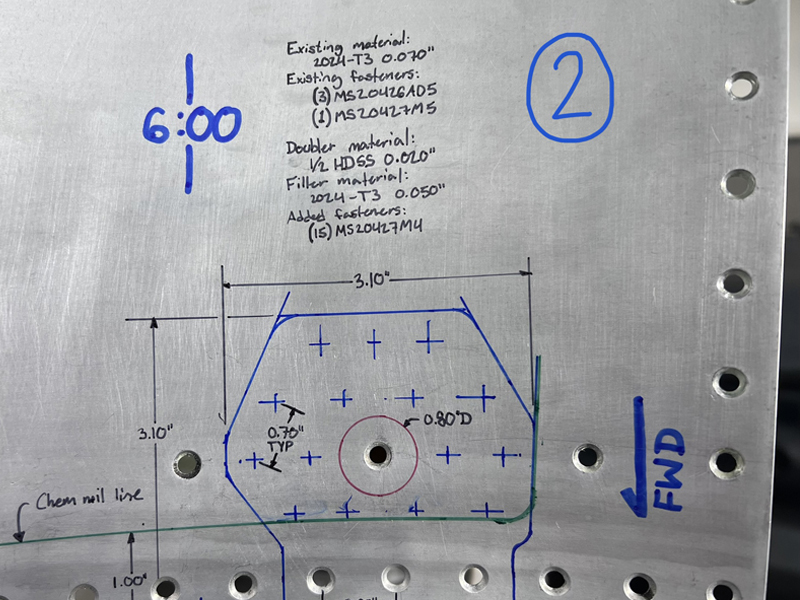 6:00
Existing material:
2024-T3 0.070"
Existing fasteners:
(3) MS20426AD5
(1) MS20427M5
Doubler material:
1/2 HDSS 0.020"
Filler material:
2024-T3 0.050"
Added fasteners:
(15) MS20427M4
2
3.10"
3.10"
0.80"D
0.70"
TYP
FWD
Chem mil line
1.00"